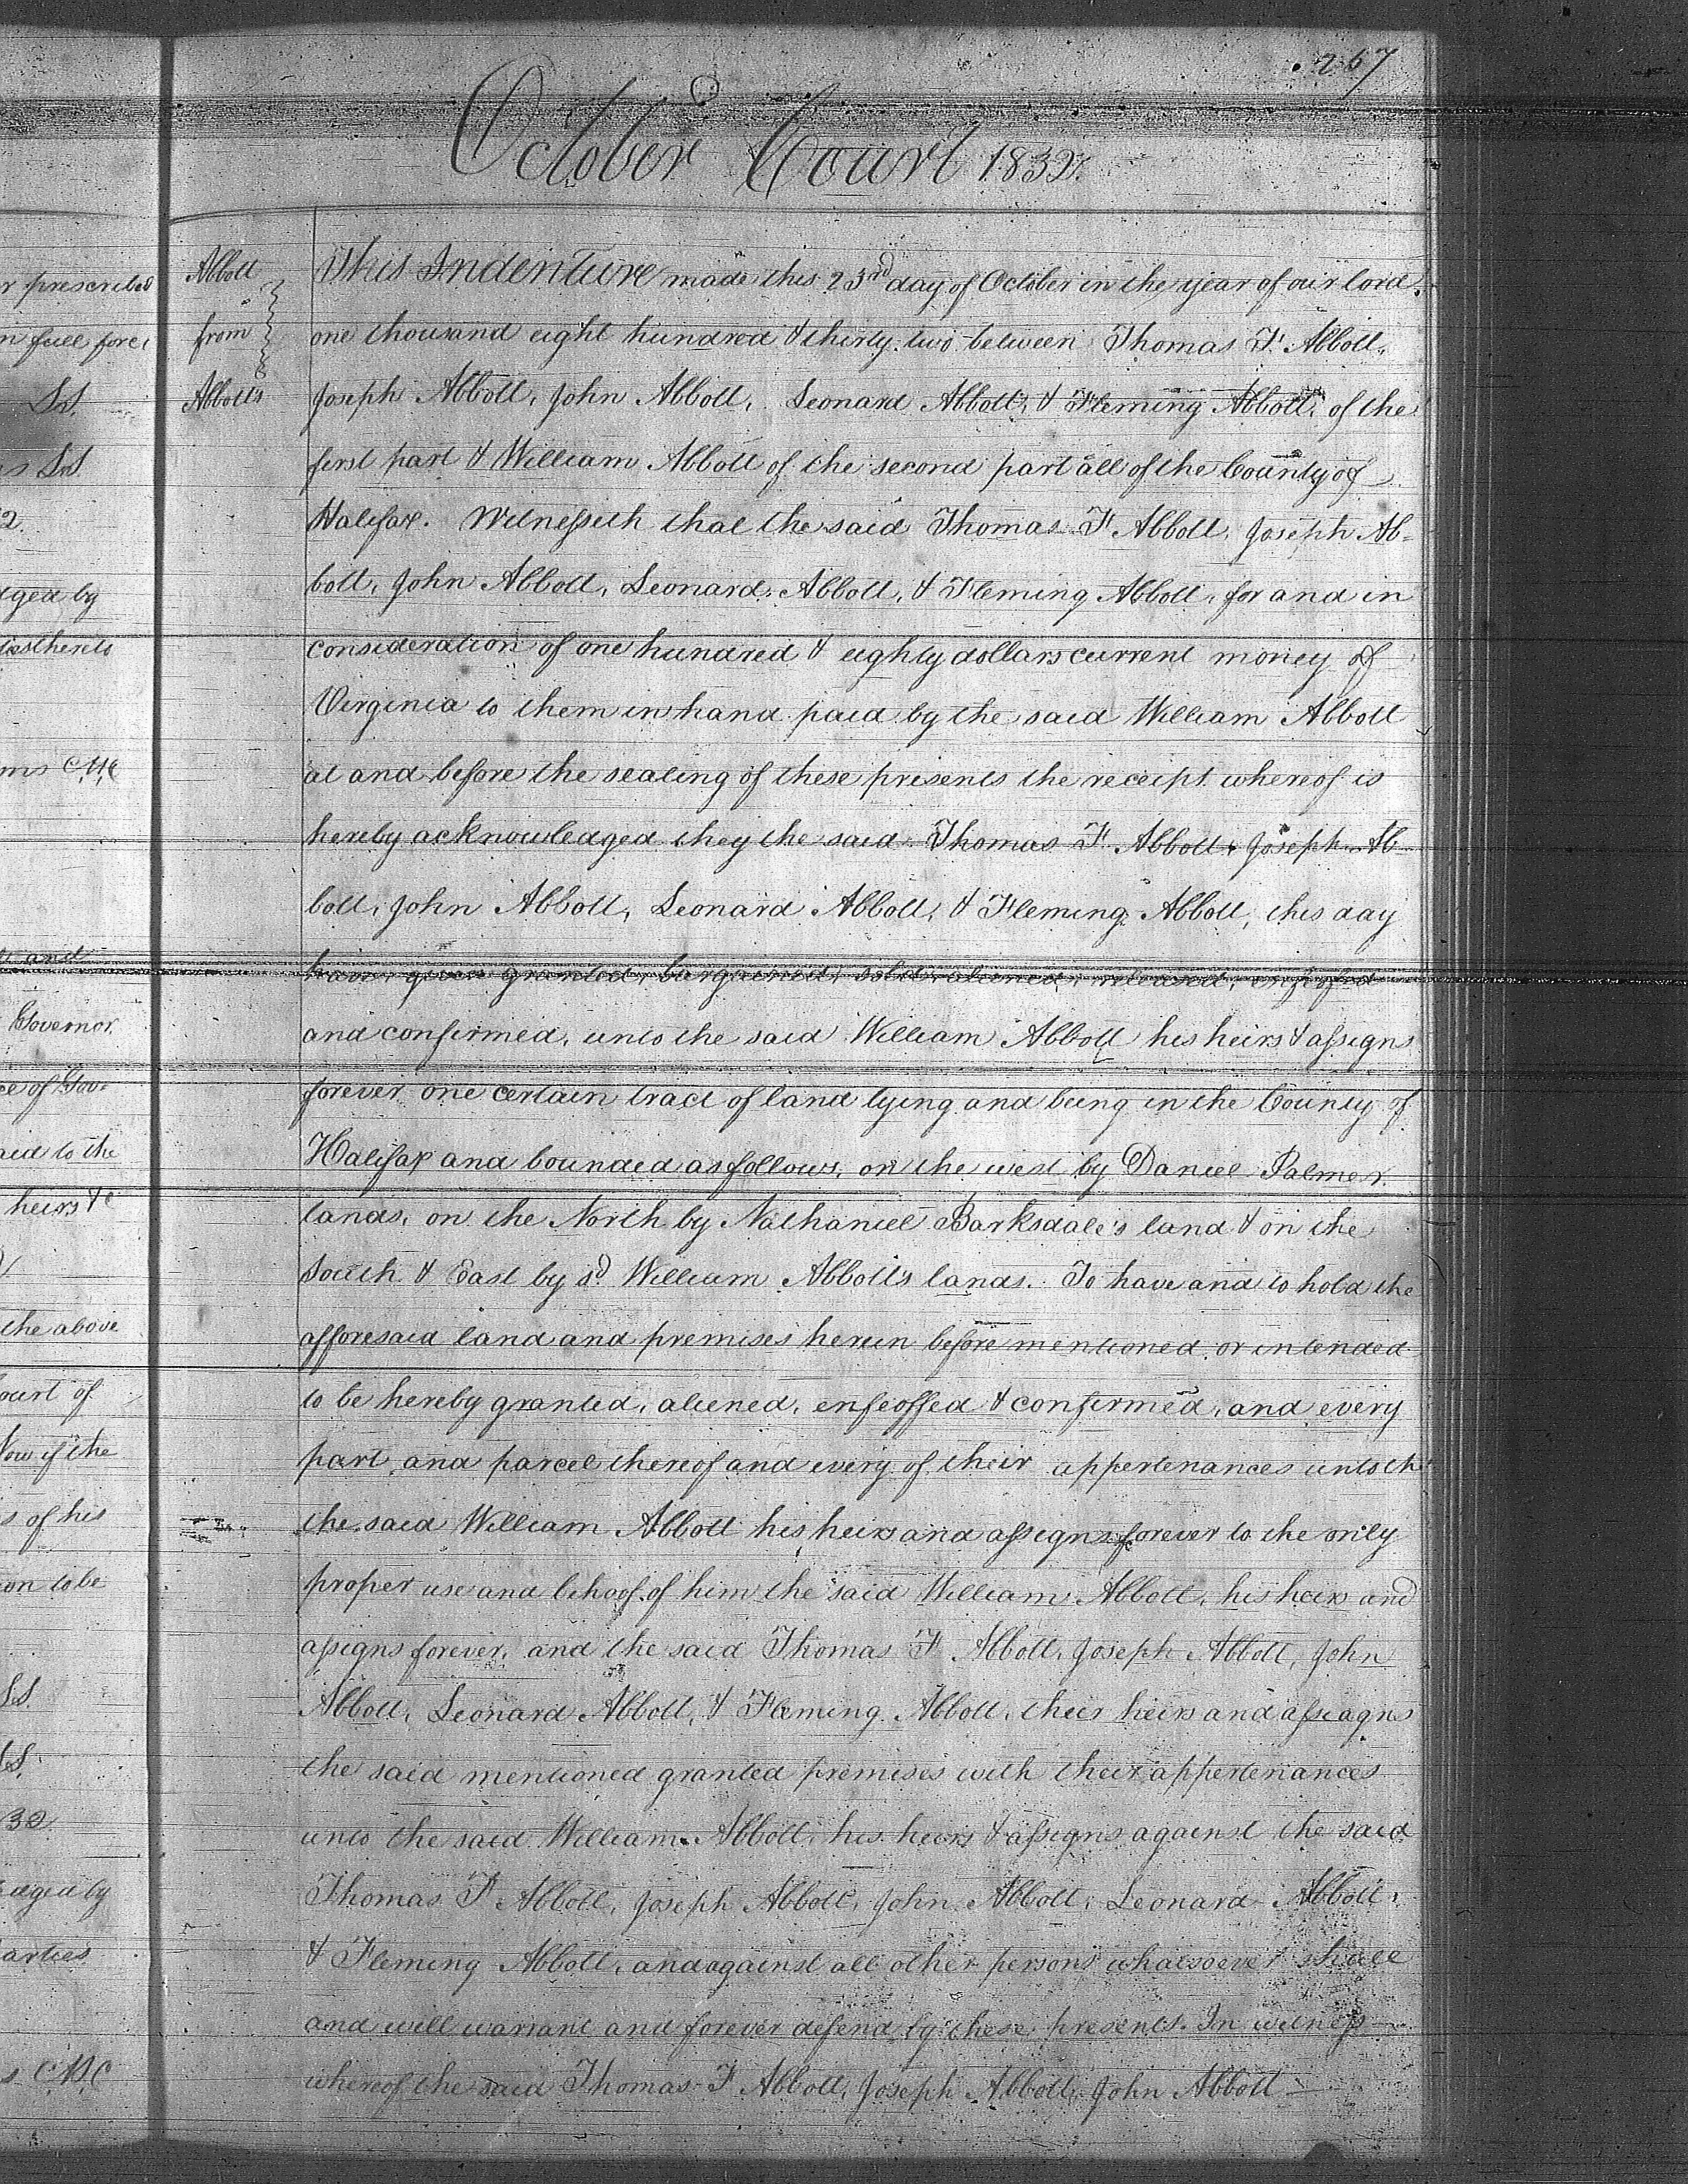 267
October Court 1832.
Abbott
from
Abbotts
This Indenture made this 23rd day of October in the year of our lord
one thousand eight hundred & thirty two between Thomas F. Abbott,
Joseph Abbott, John Abbott, Leonard Abbott, & Fleming Abbott, of the
first part & William Abbott of the second part all of the County of
Halifax. Witnesseth that the said Thomas F. Abbott, Joseph Ab-
bott, John Abbott, Leonard Abbott, & Fleming Abbott, for and in
consideration of one hundred & eighty dollars current money of
Virginia to them in hand paid by the said William Abbott
at and before the sealing of these presents the receipt whereof is
hereby acknowledged they the said Thomas F. Abbott, Joseph Ab-
bott, John Abbott, Leonard Abbott, & Fleming Abbott, this day
have given granted, bargained, sold, aliened, released, enfeoffed
and confirmed, unto the said William Abbott his heirs & assigns
forever one certain tract of land lying and being in the County of
Halifax and bounded as follows, on the west by Daniel Palmer
lands, on the North by Nathaniel Barksdale's land & on the
South & East by sd William Abbott's lands. To have and to hold the
afforesaid land and premises herein before mentioned or intended
to be hereby granted, aliened, enfeoffed & confirmed, and every
part and parcel thereof and every of their appertenances unto th
the said William Abbott his heirs and assigns forever to the only
proper use and behoof of him the said William Abbott, his heirs and
assigns forever, and the said Thomas F. Abbott, Joseph Abbott, John
Abbott, Leonard Abbott, & Fleming Abbott, their heirs and assiagns
the said mentioned granted premises with their appertenances
unto the said William Abbott, his heirs & assigns against the said
Thomas F Abbott, Joseph Abbott, John Abbott, Leonard Abbott,
& Fleming Abbott, and against all other persons whatsoever shall
and will warrant and forever defend by these presents. In witness
whereof the said Thomas F Abbott, Joseph Abbott, John Abbott
prescribed
full force
Ss.
Ss.
2.
by
ms CHC
and
Governor
of Gov-
to the
heirs &c
the above
Court of
Now if the
of his
on to be
Ss.
Ss.
32
by
arties
CHC